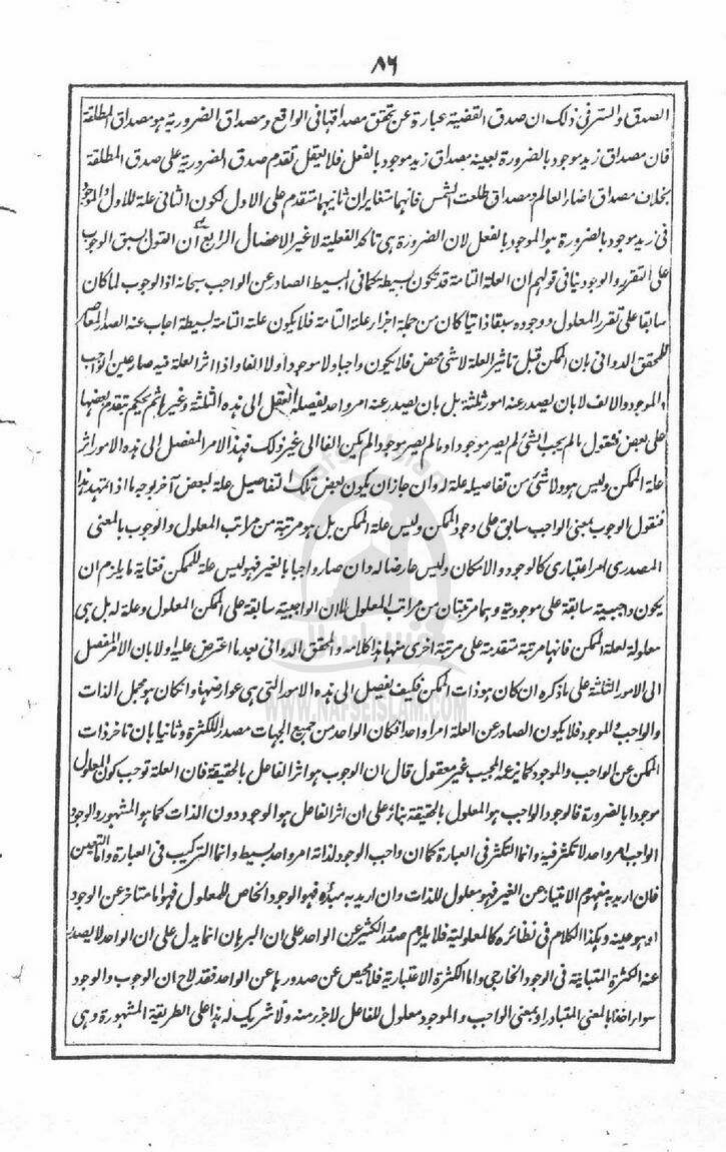 ٨٦
الصدق والسر فى ذلك ان صدق القضية عبارة عن تحقق مصداقها فى الواقع ومصداق الضرورية هو مصداق المطلقة
فان مصداق زيد موجود بالضرورة بعينه مصداق زيد موجود بالفعل فلا يعقل تقدم صدق الضرورية على صدق المطلقة
بخلاف مصداق اضاء العالم ومصداق طلعت الشمس فانهما متغايران ثانيهما متقدم على الاول لكون الثانى علة للاول الموجود
فى زيد موجود بالضرورة هو الموجود بالفعل لان الضرورة هى تاكد الفعلية لا غير الاعضال الرابع ان القول بسبق الوجوب
على التقرر والوجود ينافى قولهم ان العلة التامة قد تكون بسيطة كما فى البسيط الصادر عن الواجب سبحانه اذ الوجوب لما كان
سابقا على تقرر المعلول ووجوده سبقا ذاتيا كان من جملة اجزاء علته التامة فلا يكون علته التامة بسيطة اجاب عنه الصدر المعاصر
للمحقق الدوانى بان الممكن قبل تاثير العلة لا شئ محض فلا يكون واجبا ولا موجودا ولا الفا واذا اثر العلة فيه صار عين الواجب
والموجود والالف لا بان يصدر عنه امور ثلثة بل بان يصدر عنه امر واحد يفصله العقل الى هذه الثلثة وغيرها ثم يحكم بتقدم بعضها
على بعض فنقول ما لم يجب الشئ لم يصر موجودا وما لم يصر موجودا لم يكن الفا الى غير ذلك فهذا الامر المفصل الى هذه الامور اثر
علة الممكن وليس هو ولا شئ من تفاصيله علة له وان جاز ان يكون بعض تلك التفاصيل علة لبعض آخر بوجه ما اذا تمهد هذا
فنقول الوجوب بمعنى الواجب سابق على وجود الممكن وليس علة الممكن بل هو مرتبة من مراتب المعلول والوجوب بالمعنى
المصدرى امر اعتبارى كالوجود والامكان وليس عارضا له وان صار واجبا بالغير فهو ليس علة للممكن فغاية ما يلزم ان
يكون واجبيته سابقة على موجوديته وهما مرتبتان من مراتب المعلول لا ان الواجبية سابقة على الممكن المعلول وعلة له بل هى
معلولة لعلة الممكن فانها مرتبة متقدمة على مرتبة اخرى منها هذا كلامه والمحقق الدوانى بعد ما اعترض عليه اولا بان الامر المفصل
الى الامور الثلثة على ما ذكره ان كان هو ذات الممكن فكيف يفصل الى هذه الامور التى هى عوارضها وان كان هو مجمل الذات
والواجب والموجود فلا يكون الصادر عن العلة امرا واحدا فكان الواحد من جميع الجهات مصدرا للكثرة وثانيا بان تاخر ذات
الممكن عن الواجب والموجود كما يزعمه المجيب غير معقول قال ان الوجوب هو اثر الفاعل بالحقيقة فان العلة توجب كون المعلول
موجودا بالضرورة فالوجود الواجب هو المعلول بالحقيقة بناء على ان اثر الفاعل هو الوجود دون الذات كما هو المشهور والوجود
الواجب امر واحد لا تكثر فيه وانما التكثر فى العبارة كما ان واجب الوجود لذاته امر واحد بسيط وانما التركيب فى العبارة واما التعين
فان اريد به مفهوم الامتياز عن الغير فهو معلول للذات وان اريد به مبدؤه فهو الوجود الخاص للمعلول فهو اما متاخر عن الوجود
او هو عينه وهكذا الكلام فى نظائره كالمعلولية فلا يلزم صدور الكثير عن الواحد على ان البرهان انما يدل على ان الواحد لا يصدر
عنه الكثرة المتباينة فى الوجود الخارجى واما الكثرة الاعتبارية فلا محيص عن صدورها عن الواحد فقد لاح ان الوجوب والوجود
سواء اخذا بالمعنى المتبادر او بمعنى الواجب والموجود معلول للفاعل لا جزء منه ولا شريك له هذا على الطريقة المشهورة وهى
WWW.NAFSEISLAM.COM